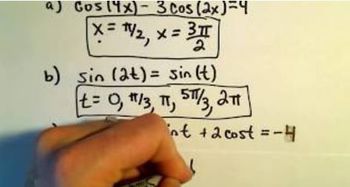 a) cos(4x) - 3cos(2x) = 4
x = π/2, x = 3π/2
b) sin(2t) = sin(t)
t = 0, π/3, π, 5π/3, 2π
t + 2cost = -4